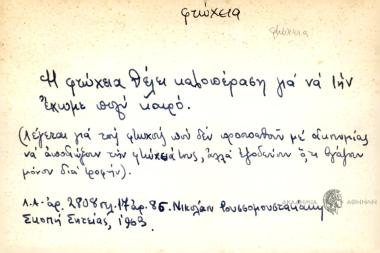 φτώχεια
φτώχεια
Ἡ φτώχεια θέλει καλοπέραση γιά νά τήν
ἔχωμε πολύ καιρό.
(Λέγεται γιά τούς φτωχούς πού δέν προσπαθοῦν μέ οἰκονομίες
νά ἀποδιώξουν τήν φτώχειά τους, ἀλλά ἐξοδεύουν ὅ,τι βγάζουν
μόνον διά τροφήν).
Λ.Α. ἀρ. 2808 σελ. 17 ἀρ. 85. Νικολάου Ρουσσομουστακάκη
Σκοπή Σητείας, 1963
ΑΚΑΔΗΜΙΑ ΑΘΗΝΩΝ